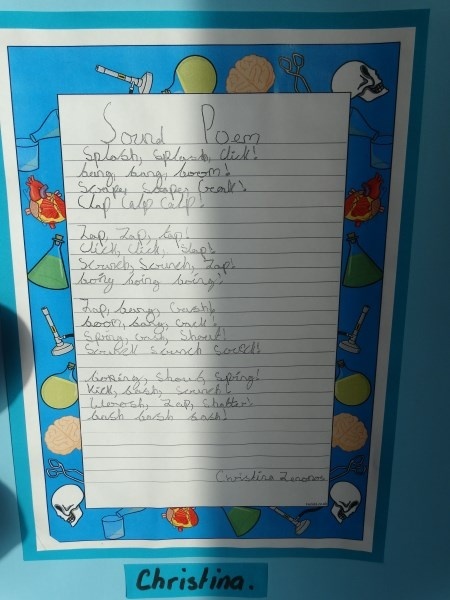 Sound Poem
Splash, Splash, Click!
bang, bang, boom!
Scrape, Scrape, Creak!
Clap Calp Calp!
Zap, Zap, Zap!
Click, Click, Slap!
Scrunch, Scrunch, Zap!
boing boing boing!
Zap, bang, Crash!
boom, bang, crack!
Spring, crash, Shout!
Scrunch
boing, Shout, Spring!
Kick, bash, Scrunch!
Woosh, Zap, Shatter!
bash bash bash!
Christina
Christina.